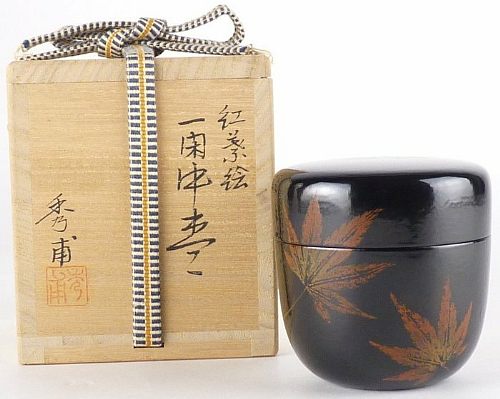 紅葉絵
一閑中棗
秀甫
秀甫